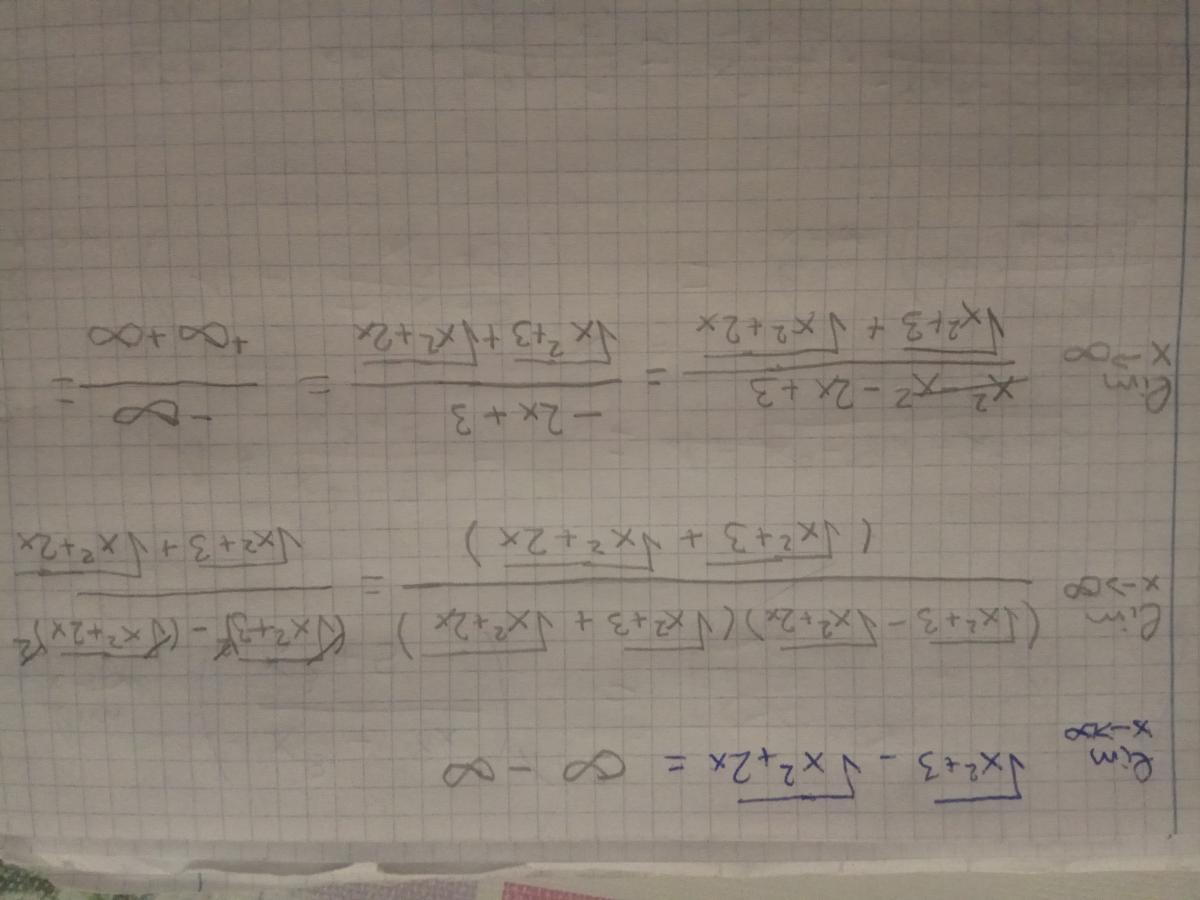 lim x→∞ √x²+3 - √x²+2x = ∞ - ∞
lim x→∞ (√x²+3 - √x²+2x)(√x²+3 + √x²+2x) / (√x²+3 + √x²+2x) = (√x²+3)² - (√x²+2x)² / √x²+3 + √x²+2x
lim x→∞ x² - x² - 2x + 3 / √x²+3 + √x²+2x = -2x + 3 / √x²+3 + √x²+2x = -∞ / +∞ +∞ =